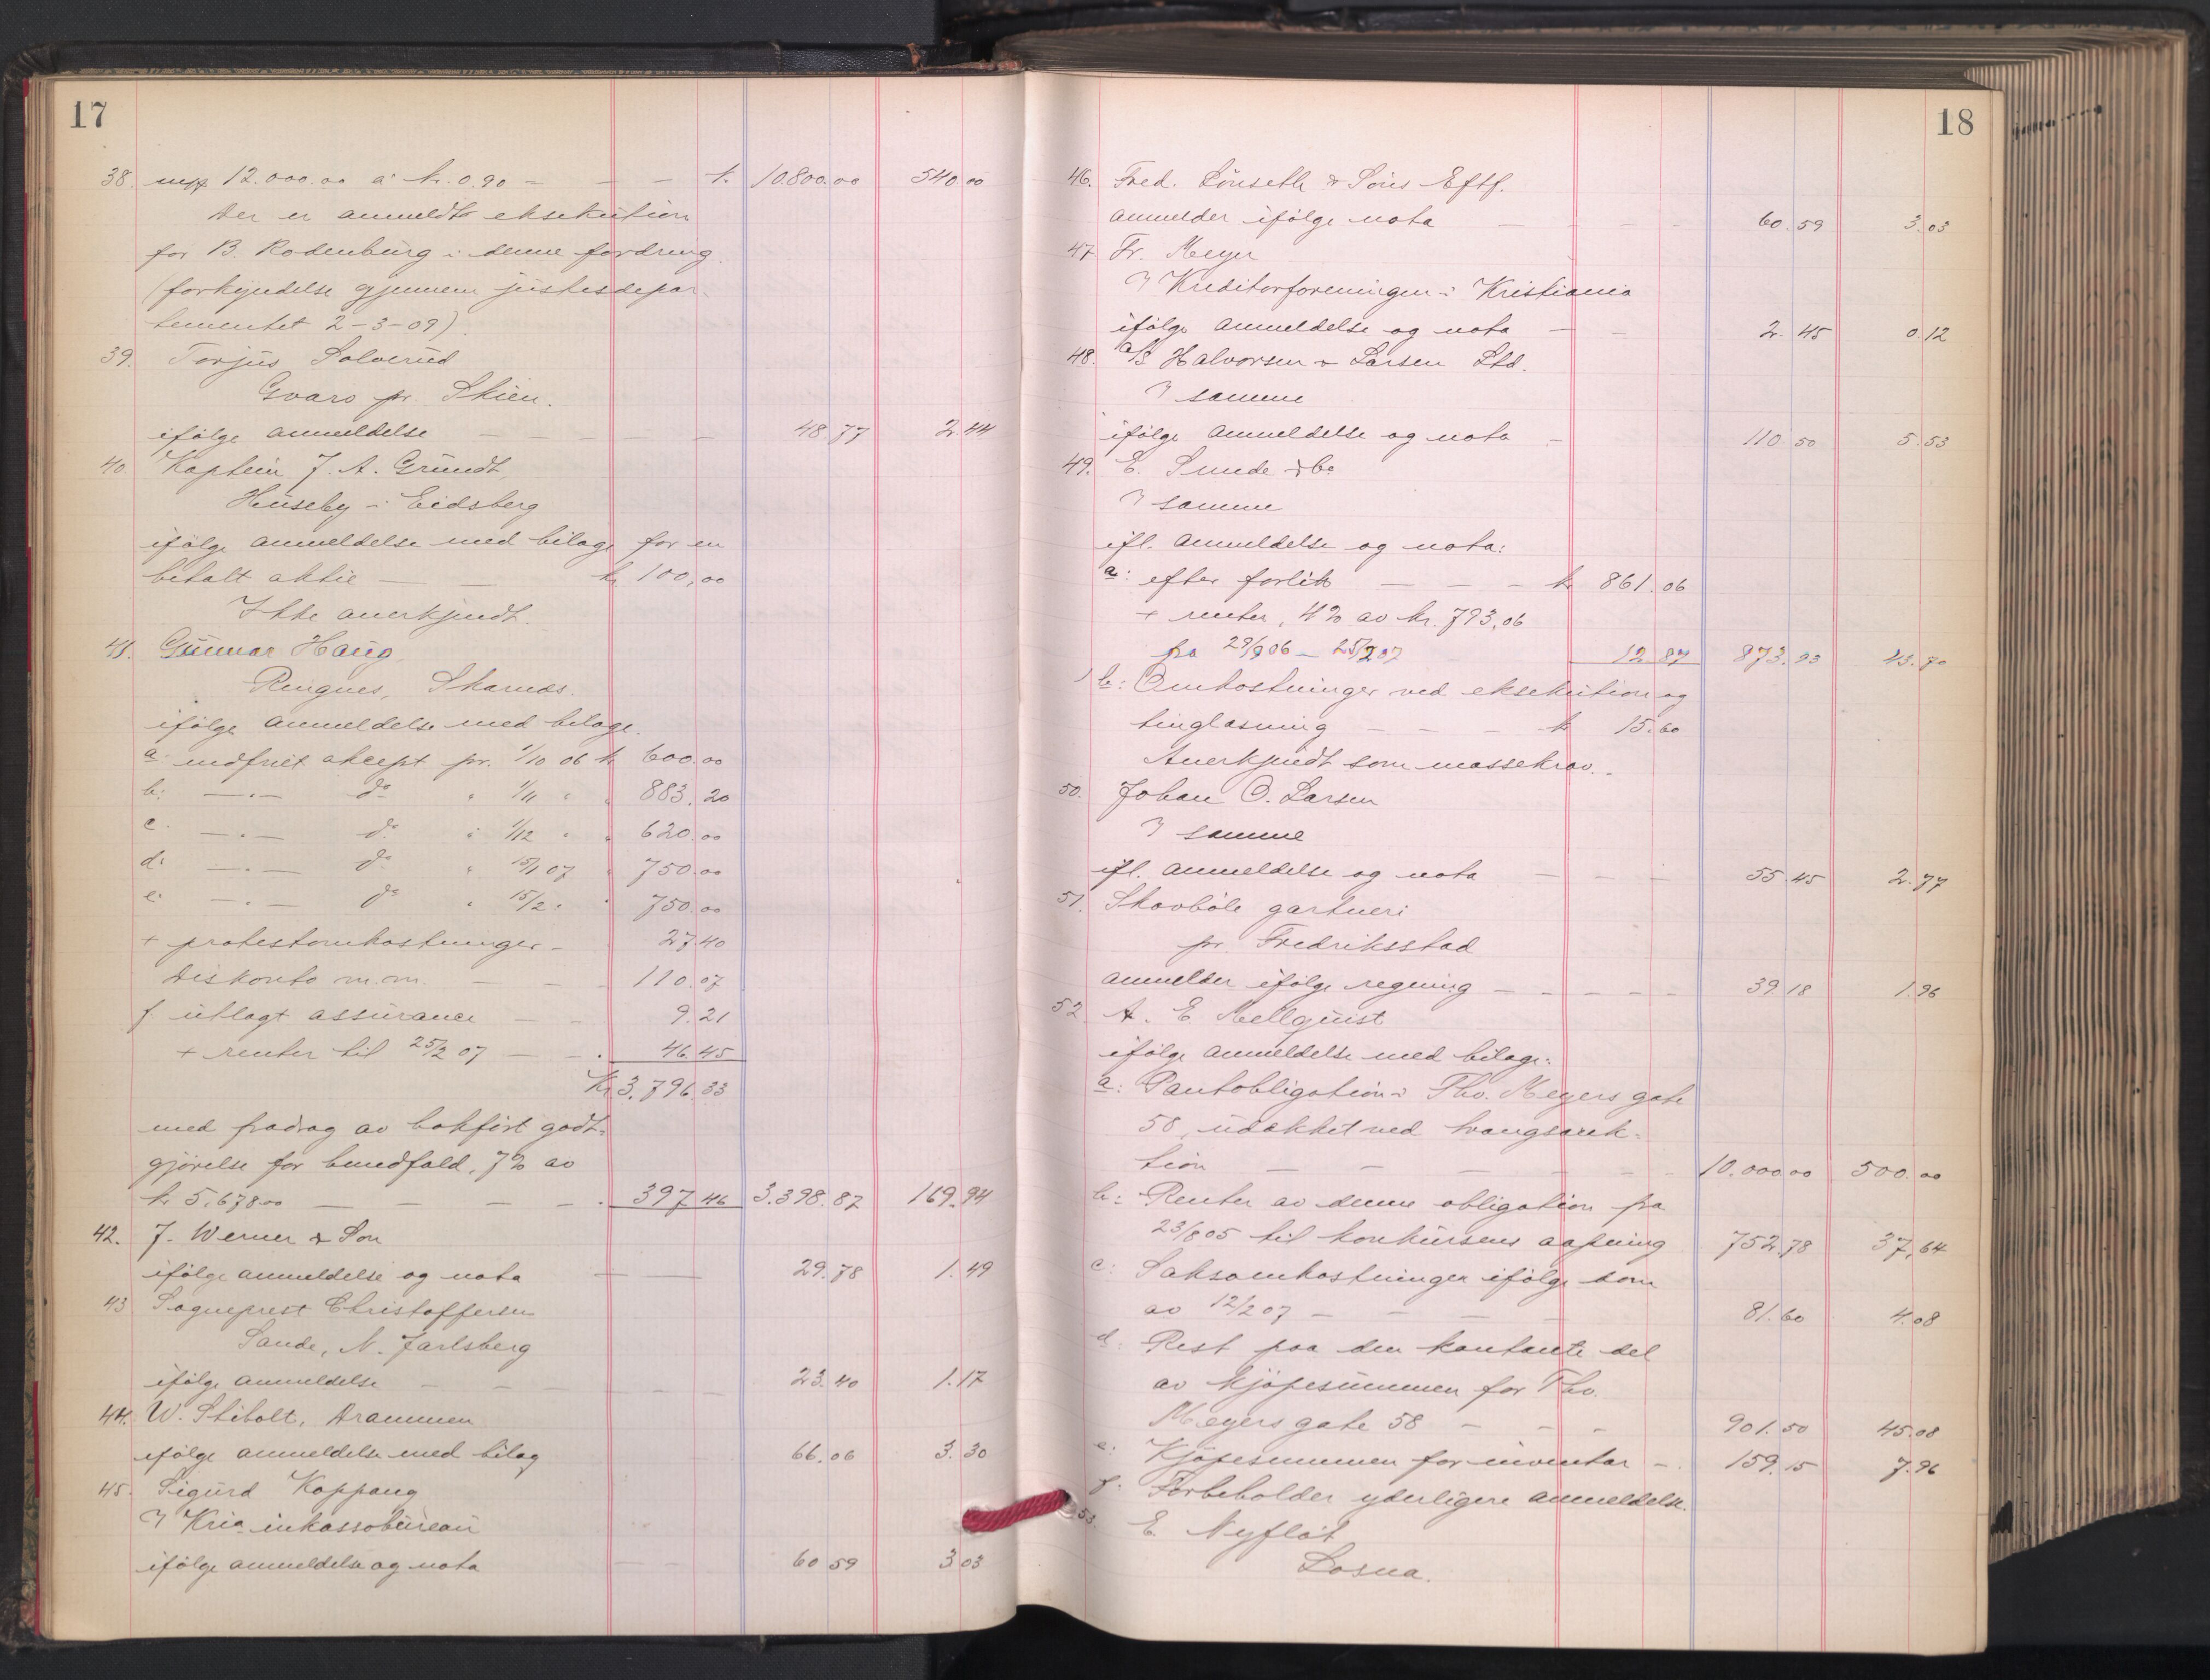 17
38. 12.000.00 a kr. 0.90 – – – k. 10.800.00 540.00
Der er anmeldt eksekution
for B. Rodenburg i denne fordring
(forkyndelse gjennem justisdepar-
tementet 2-3-09).
39. Torjus Solverud
Gvarv pr. Skien.
ifølge anmeldelse – – – – 48.77 2.44
40. Kaptein J. A. Grundt,
Huseby i Eidsberg
ifølge anmeldelse med bilage for en
betalt aktie – – kr 100,00
Ikke anerkjendt.
41. Gunnar Haug
Ringnes, Skarnes.
ifølge anmeldelse med bilage.
a: indfriet aksept pr. 1/10 06 k 600.00
b: –„– do „ 1/11 „ „ 883.20
c: –„– do „ 1/12 „ „ 620.00
d: –„– do „ 15/1 07 „ 750.00
e: –„– do „ 15/2 „ „ 750.00
+ protestomkostninger – 27.40
diskonto m.m. – – – 110.07
f. utlagt assurance – – 9.21
+ renter til 25/2 07 – – . 46.45
Kr 3.796.33
med fradrag av bokført godt-
gjørelse for 7% av
kr 5.678.00 – – – – . 397.46 3.398.87 169.94
42. J. Werner & Søn
ifølge anmeldelse og nota – – 29.78 1.49
43 Sogneprest Christoffersen
Sande, N. Jarlsberg
ifølge anmeldelse – – – – – 23.40 1.17
44. W. Stibolt, Drammen
ifølge anmeldelse med bilag 66.06 3.30
45. Sigurd Koppang
v/ Kria inkassobureau
ifølge anmeldelse og nota – – 60 59 3 03
18
46. Fred. Lønseth & Søns Eftf.
anmelder ifølge nota – – – – 60.59 3.03
47. Fr. Meyer
v/ Kreditorforeningen i Kristiania
ifølge anmeldelse og nota – – 2.45 0.12
48. A/S Halvorsen & Larsen Ltd.
v/ samme
ifølge anmeldelse og nota – 110 50 5.53
49. E. Sunde & Co
v/ samme
ifl. anmeldelse og nota:
a: efter forlik – – – kr 861.06
+ renter, 4% av kr. 793,06
fra 29/9 06 – 25/2 07 12 87 873.93 43.70
b: Omkostninger ved eksekution og
tinglæsning – – – kr 15.60
Anerkjendt som massekrav.
50. Johan O. Larsen
v/ samme
ifl. anmeldelse og nota – – – 55.45 2.77
51. Skovbøle gartneri
pr. Fredriksstad
anmelder ifølge regning – – – – – 39.18 1.96
52 A. E. Mellquist
ifølge anmeldelse med bilage:
a: Pantobligation i Thv. Meyers gate
58, udækket ved tvangsauk-
tion – – – – – – 10.000.00 500.00
b: Renter av denne obligation fra
23/8 05 til konkursens aapning 752.78 37,64
c: Saksomkostninger ifølge dom
av 12/2 07 – – – – 81.60 4.08
d: Rest paa den kontante del
av kjøpesummen for Thv.
Meyers gate 58 – – – 901.50 45.08
e: Kjøpesummen for inventar – . 159.15 7.96
f: Forbeholder yderligere anmeldelse.
53. E. Nyfløt
Losna.